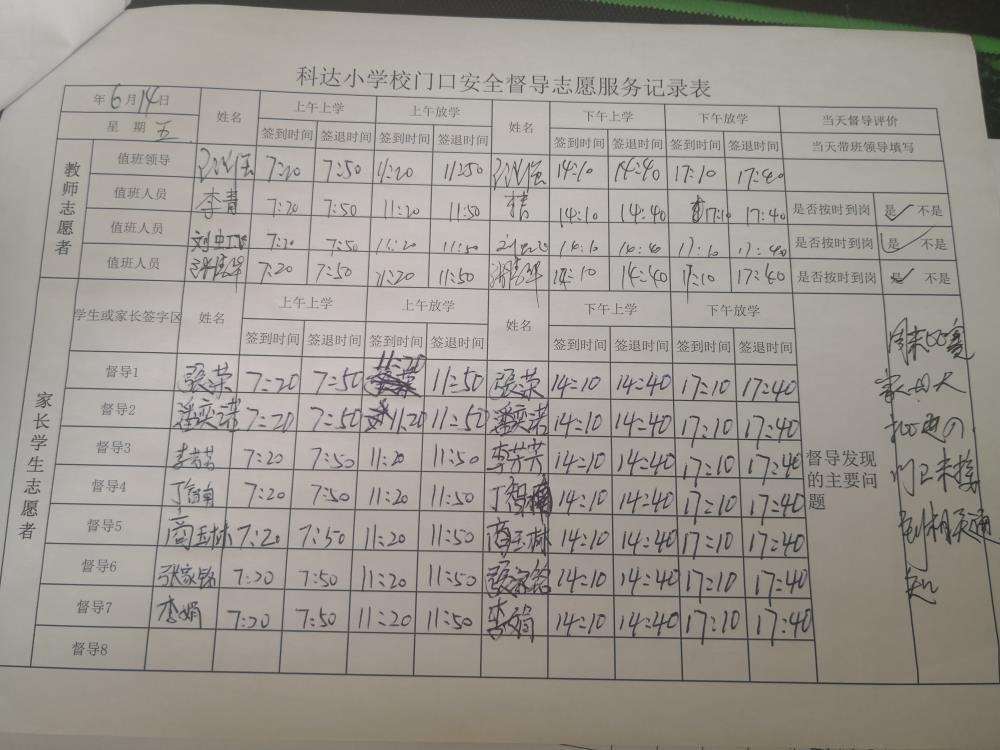 科达小学校门口安全督导志愿服务记录表
年6月14日 姓名 上午上学 上午放学 姓名 下午上学 下午放学 当天督导评价
星期五 签到时间 签退时间 签到时间 签退时间 签到时间 签退时间 签到时间 签退时间 当天带班领导填写
教师志愿者
值班领导 7:20 7:50 11:20 11:50 14:10 14:40 17:10 17:40
值班人员 李青 7:20 7:50 11:20 11:50 李青 14:10 14:40 17:10 17:40 是否按时到岗 是✓ 不是
值班人员 刘虹 7:20 7:50 11:20 11:50 14:10 14:40 17:10 17:40 是否按时到岗 是✓ 不是
值班人员 7:20 7:50 11:20 11:50 14:10 14:40 17:10 17:40 是否按时到岗 是✓ 不是
家长学生志愿者
学生或家长签字区 姓名 上午上学 上午放学 姓名 下午上学 下午放学
签到时间 签退时间 签到时间 签退时间 签到时间 签退时间 签到时间 签退时间
督导1 張荣 7:20 7:50 11:20 11:50 張荣 14:10 14:40 17:10 17:40
督导2 潘奕诺 7:20 7:50 11:20 11:50 潘奕诺 14:10 14:40 17:10 17:40
督导3 李芳芳 7:20 7:50 11:20 11:50 李芳芳 14:10 14:40 17:10 17:40
督导4 7:20 7:50 11:20 11:50 14:10 14:40 17:10 17:40
督导5 商玉林 7:20 7:50 11:20 11:50 商玉林 14:10 14:40 17:10 17:40
督导6 张家铭 7:20 7:50 11:20 11:50 張家铭 14:10 14:40 17:10 17:40
督导7 李娟 7:20 7:50 11:20 11:50 李娟 14:10 14:40 17:10 17:40
督导8
督导发现
的主要问
题
门卫未接
到相关通
知